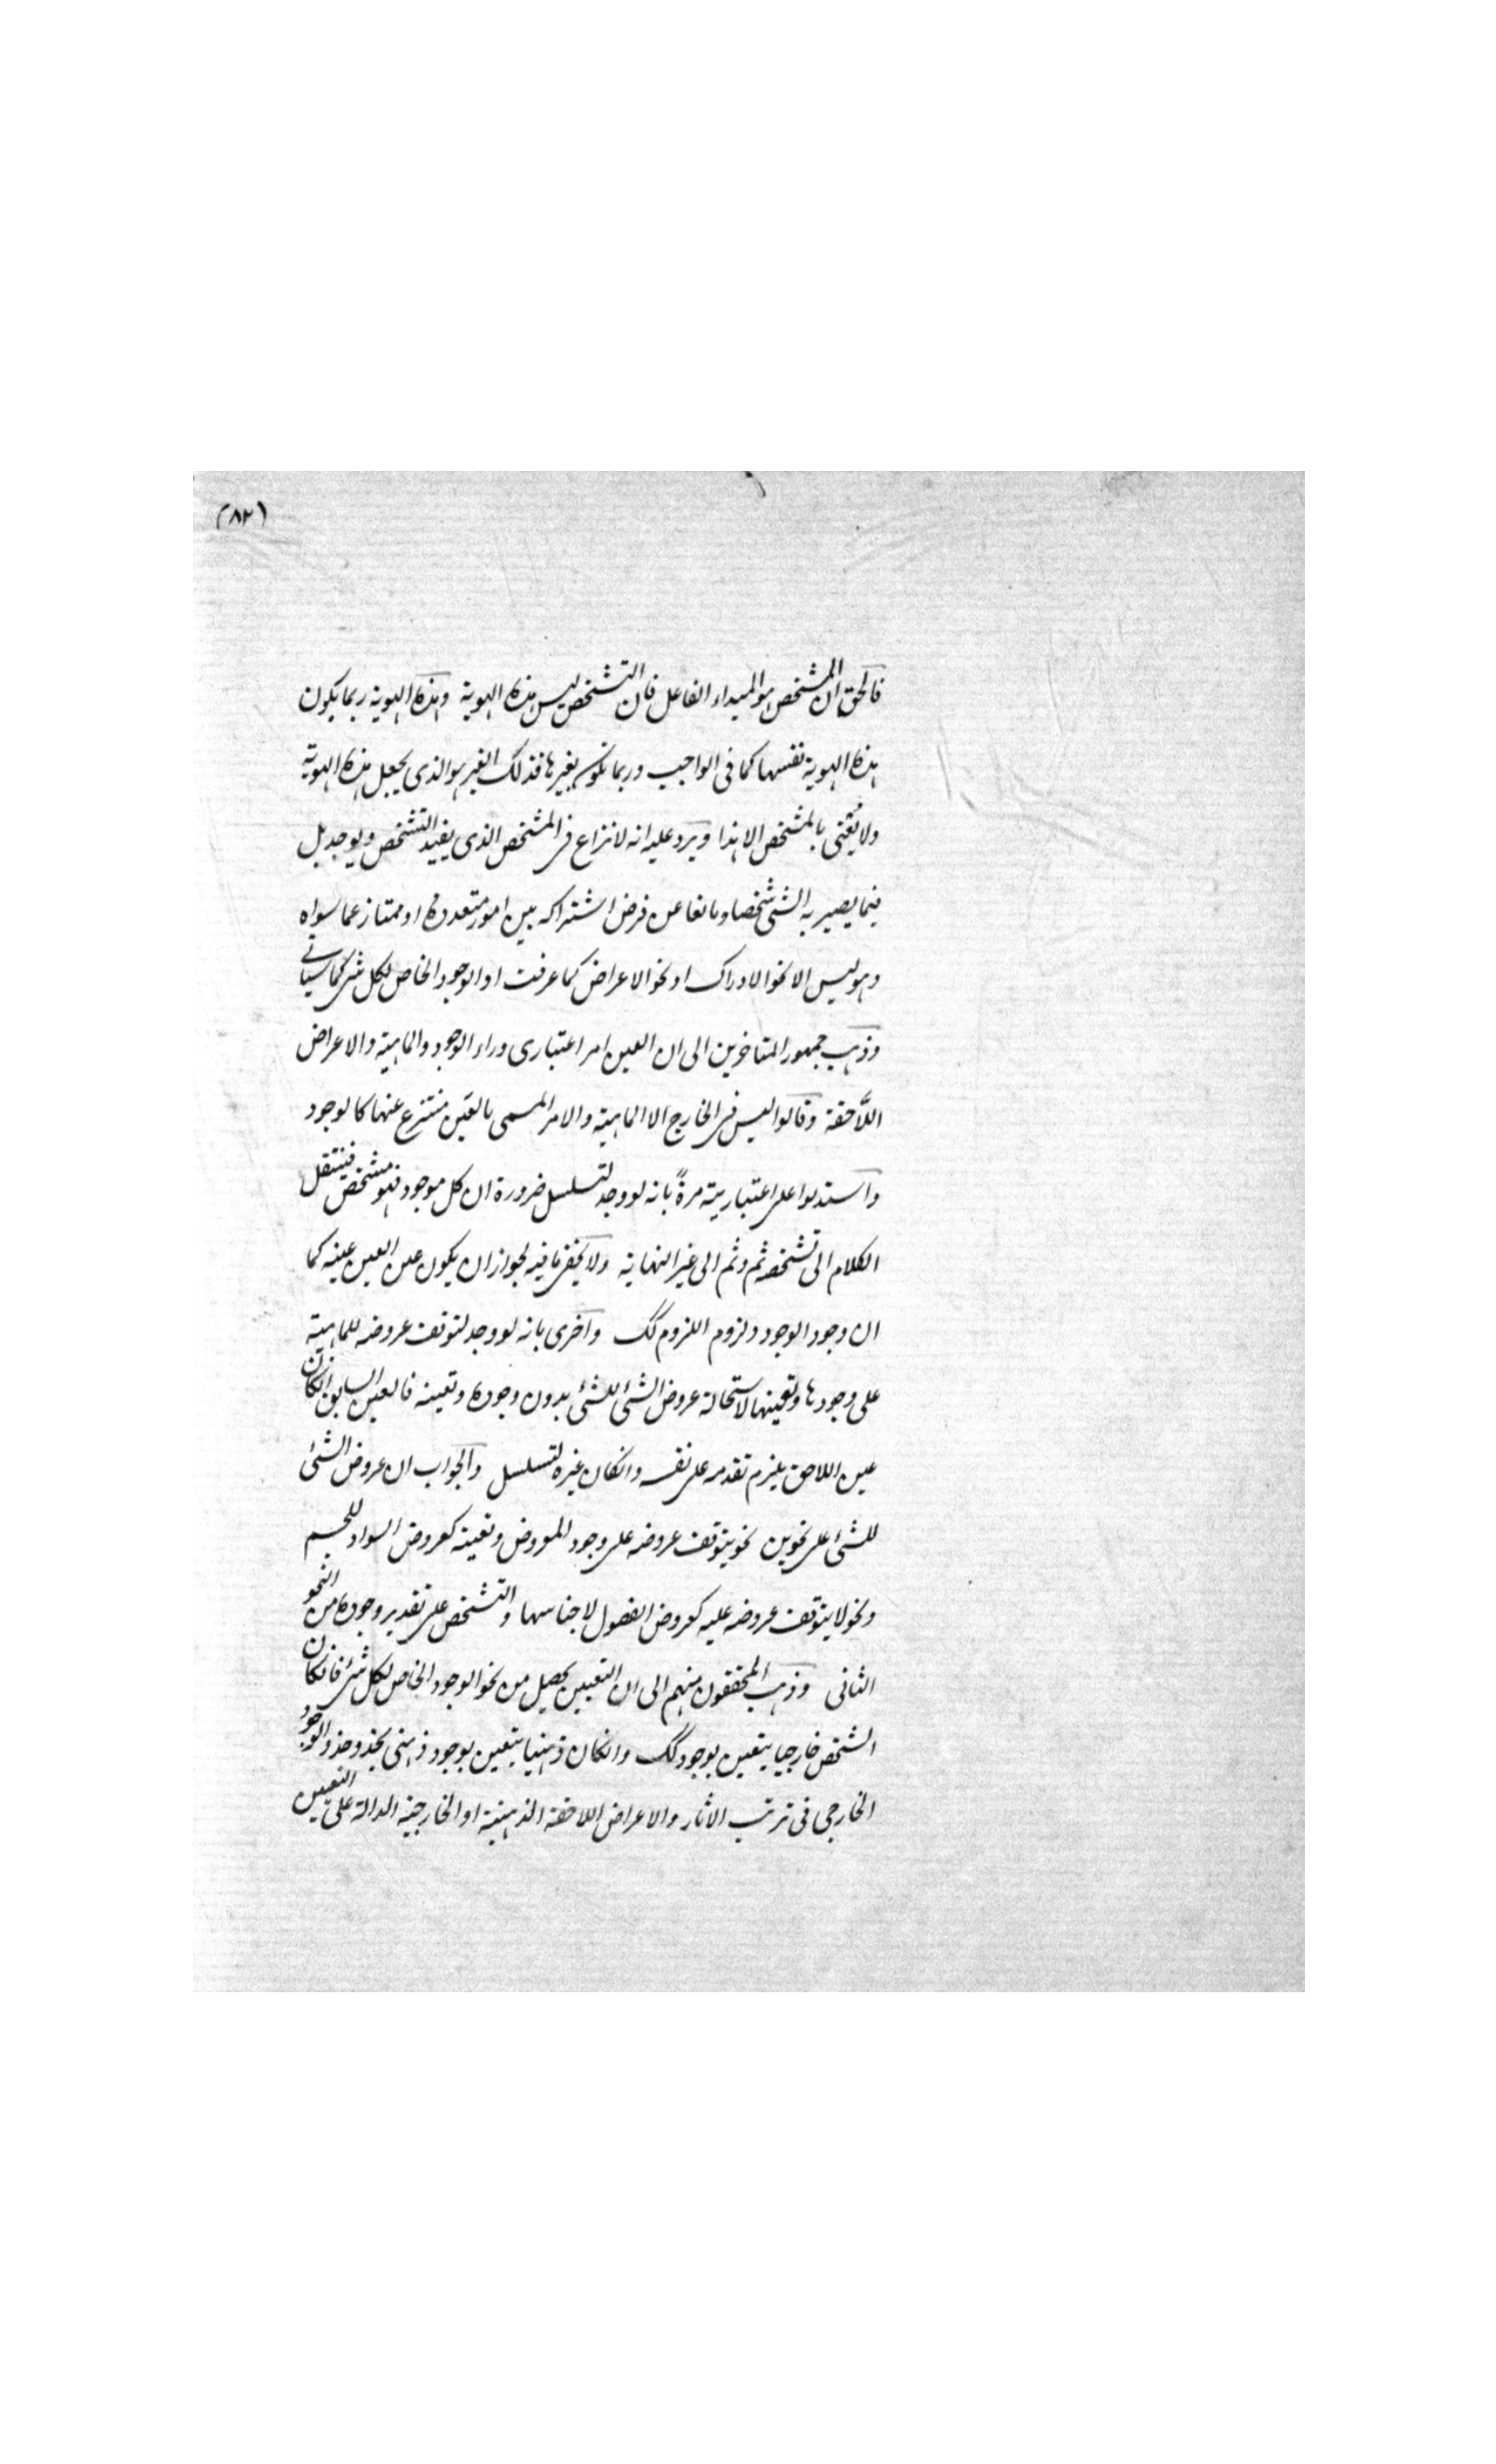 (٨٢)
فالحق ان المشخص هو المبداء الفاعل فان التشخص ليس هذه الهوية وهذه الهوية ربما يكون
هذه الهوية نفسها كما فى الواجب وربما تكون بغيرها فذلك الغير هو الذى يجعل هذه الهوية
ولا يعنى بالمشخص الا هذا ويرد عليه انه لا نزاع فى المشخص الذى يفيد التشخص ويوجد بل
فيما يصير به الشئ شخصا ومانعا عن فرض اشتراكه بين امور متعدده او ممتاز عما سواه
وهو ليس الا نحو الادراك او نحو الاعراض كما عرفت او الوجود الخاص لكل شئ كما سياتى
وذهب جمهور المتاخرين الى ان التعين امر اعتبارى وراء الوجود والماهية والاعراض
اللاحقة وقالوا ليس فى الخارج الا الماهية والامر المسمى بالتعين منتزع عنها كالوجود
واستدلوا على اعتباريته مرةً بانه لو وجد لتسلسل ضرورة ان كل موجود فهو مشخص فينتقل
الكلام الى تشخصه ثم وثم الى غير النهاية ولا يخفى ما فيه لجواز ان يكون عين التعين عينه كما
ان وجود الوجود ولزوم اللزوم كك واخرى بانه لو وجد لتوقف عروضه للماهية
على وجودها وتعينها لاستحالة عروض الشئ للشئ بدون وجوده وتعينه فالتعين السابق انكان
عين اللاحق يلزم تقدمه على نفسه وانكان غيره لتسلسل والجواب ان عروض الشئ
للشئ على نحوين نحو يتوقف عروضه على وجود المعروض وتعينه كعروض السواد للجسم
ونحو لا يتوقف عروضه عليه كعروض الفصول لاجناسها والتشخص على تقدير وجوده من النحو
الثانى وذهب المحققون منهم الى ان التعيين يحصل من نحو الوجود الخاص لكل شئ فانكان
الشخص خارجيا يتعين بوجود كك وانكان ذهنيا يتعين بوجود ذهنى يحذو حذو الوجود
الخارجى فى ترتب الاثار والاعراض اللاحقة الذهنية او الخارجية الدالة على التعيين